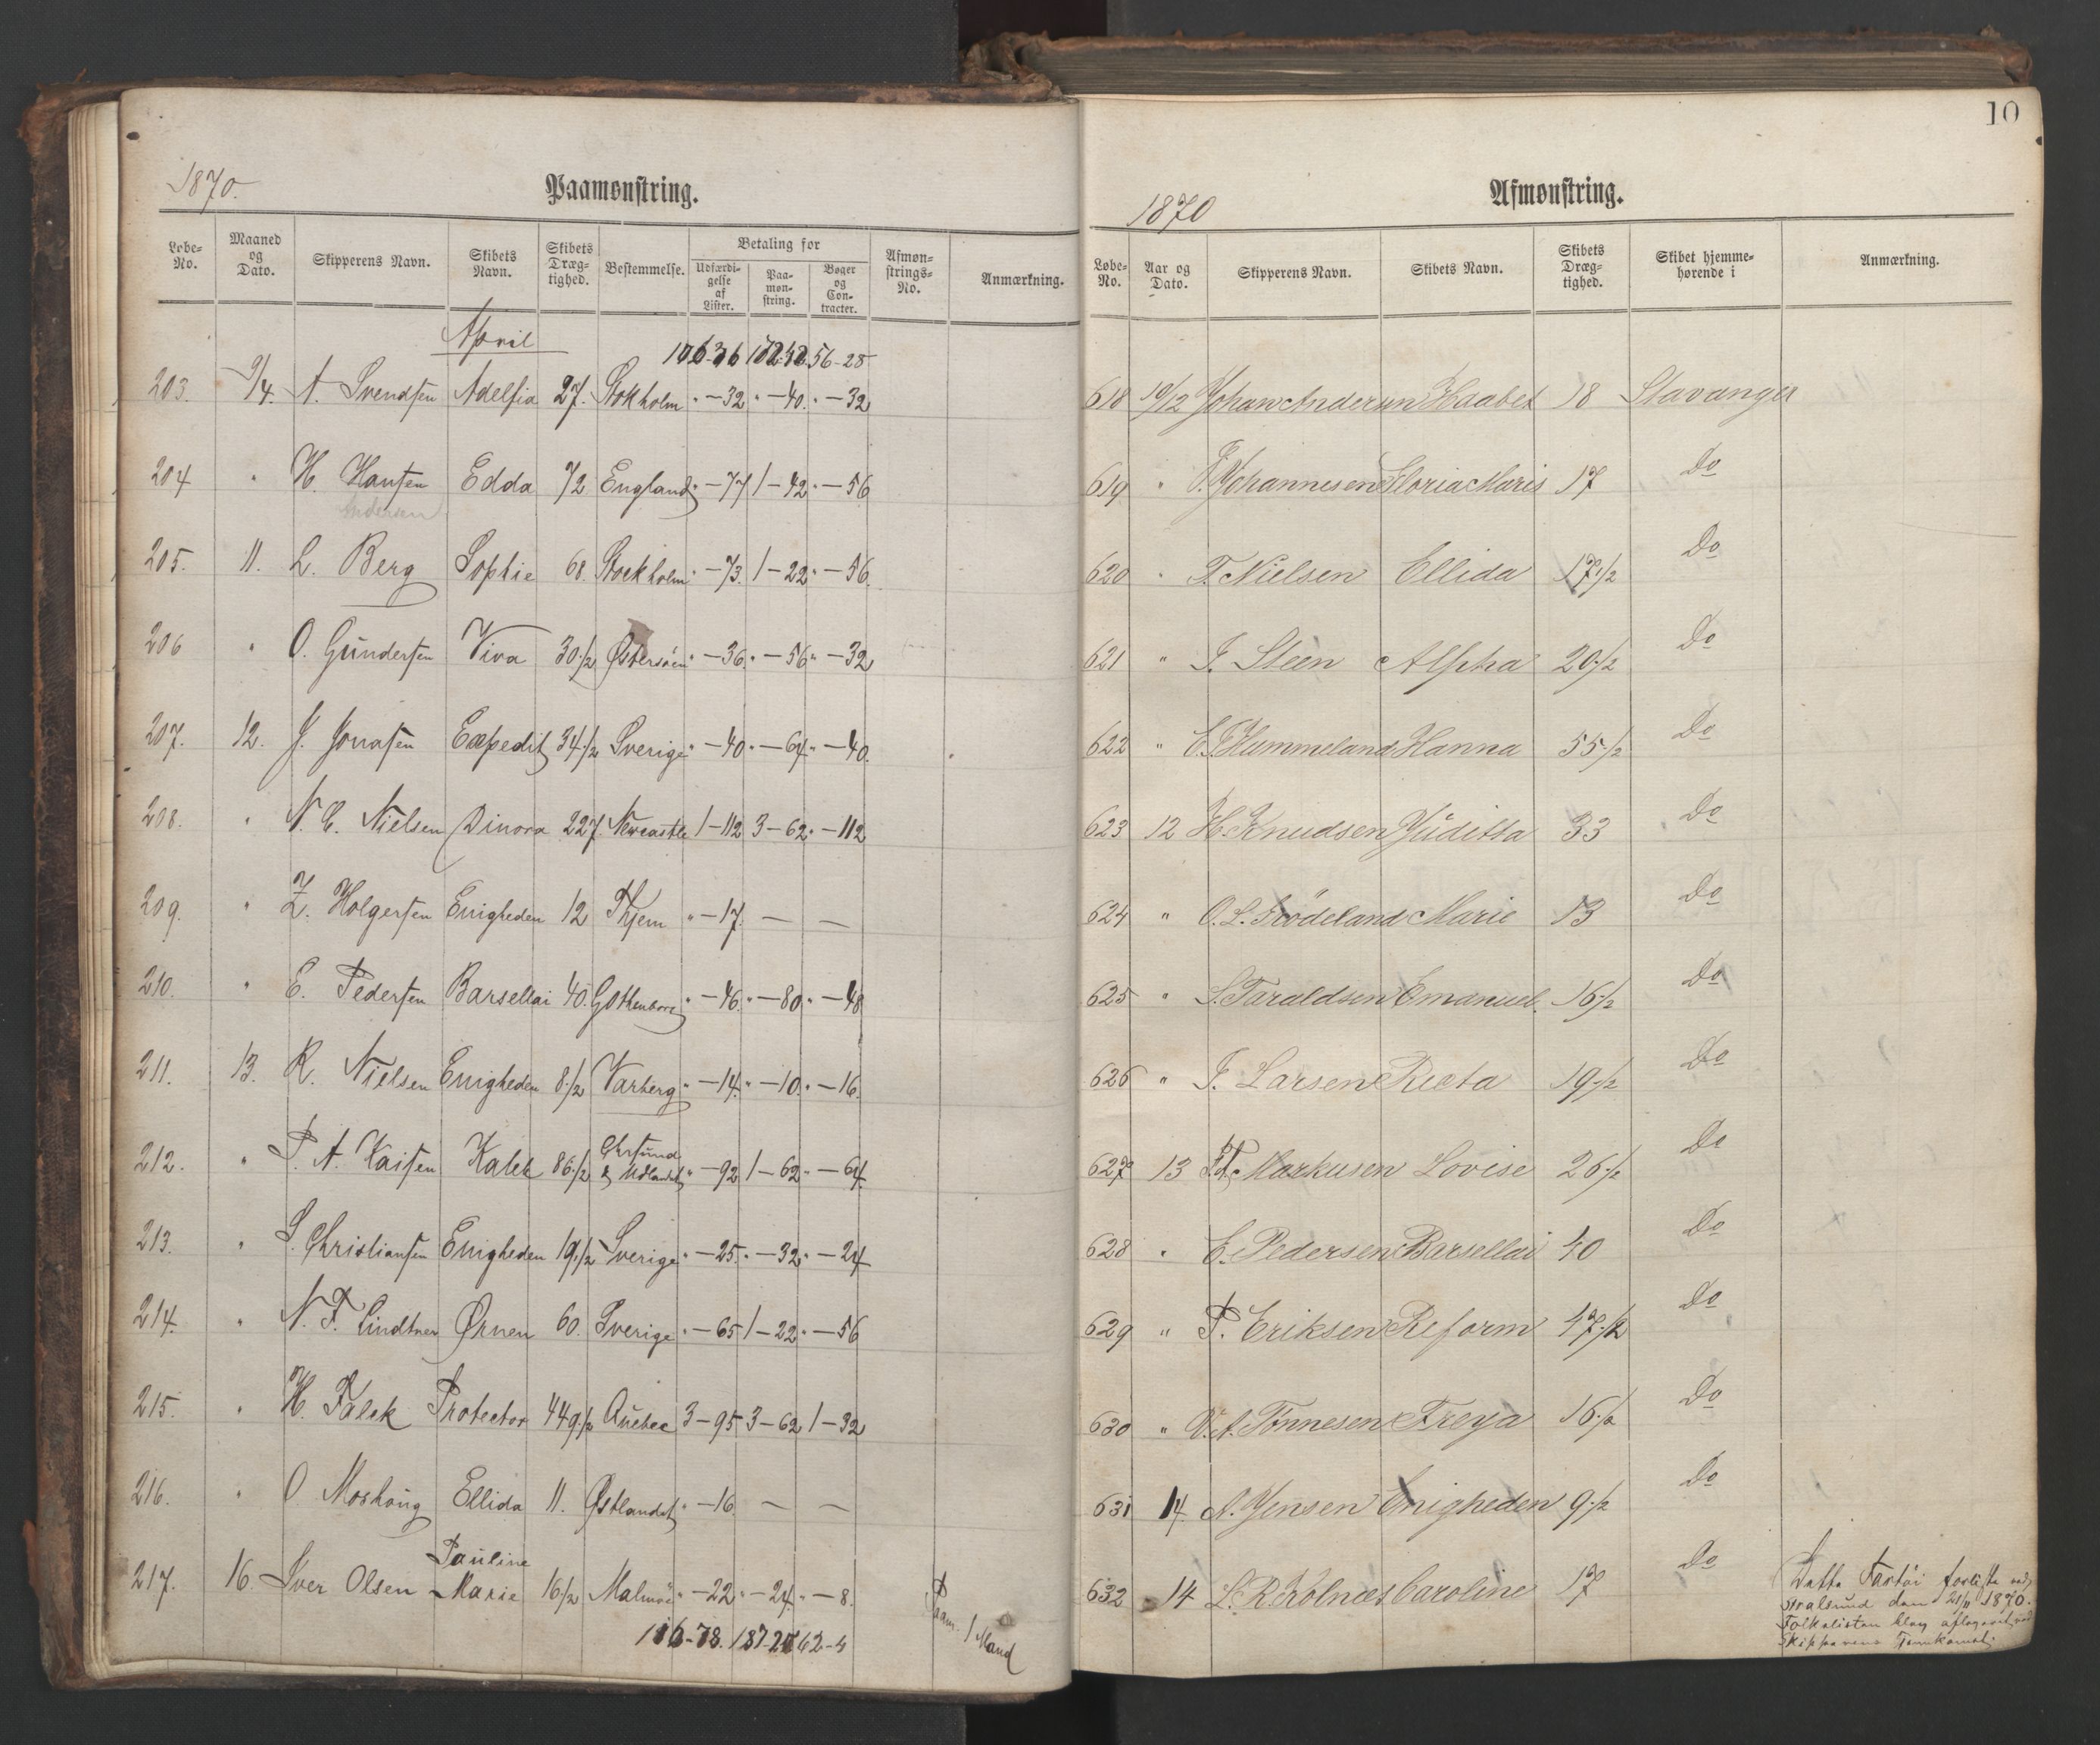 1870.
Paamønstring.
Løbe-No. Maaned og Dato. Skipperens Navn. Skibets Navn. Skibets Dræg-tighed. Bestemmelse. Betaling for Udfærdi-gelse af Lister. Paa-møn-string. Bøger og Con-tracter. Afmøn-strings-No. Anmærkning.
April
56-28
203. 9/4. A. Svendsen Adelfia 27. Stokholm " - 32 " - 40. " - 32
204 " H. Hansen Edda 72 England " - 77 1 - 42 " - 56
Andersen
205. 11. L. Berg Sophie 68. Stockholm " - 73. 1 - 22 " - 56.
206 " O. Gundersen Viva 30 1/2 Østersøen " - 36. " - 56 " - 32
207. 12. J. Jonasen Expedit 34 1/2 Sverige " - 40 " - 64 " - 40.
208. " N. C. Nielsen Dinora 227. Newcastle 1 - 112 3 - 62 " - 112
209. " Z. Holgersen Enigheden 12 Thjem " - 17. — —
210. " E. Pedersen Barsellai 40. Gothenborg " - 46. " - 80 " - 48
211. 13. R. Nielsen Enigheden 8 1/2 Varberg " - 14. " - 10. " - 16.
212. " P. A. Kaisen Kalek 86 1/2 Chrsund & Udlandet " - 92 1 - 62 " - 64.
213. " S. Christiansen Enigheden 19 1/2 Sverige " - 25. " - 32 " - 24
214. " N. F. Lindtner Ørnen 60. Sverige " - 65 1 - 22 " - 56
215. " H. Falck Protector 449 1/2 Quebec 3 - 95 3 - 62 1 - 32
216. " O Moshaug Ellida 11. Østlandet " - 16. — —
Pauline
217. 16. Iver Olsen Marie 16 1/2 Malmöe " - 22 " - 24. " - 8.
62-4
Paam. 1 Mand
10
1870
Afmønstring.
Løbe-No. Aar og Dato. Skipperens Navn. Skibets Navn. Skibets Dræg-tighed. Skibet hjemme-hørende i Anmærkning.
618 10/12 Johan Andersen Haabet 18 Stavanger
619 " J. Johannesen Gloria Maris 17 Do
620 " T. Nielsen Ellida 17 1/2 Do
621 " J. Steen Alpha 20 1/2 Do
622 " E. T. Hummeland Hanna 55 1/2 Do
623 12 H. Knudsen Juditta 33 Do
624 " O. L. Frödeland Marie 13 Do
625 " S. Taraldsen Emanuel. 16 1/2 Do
626 " J. Larsen Recta 19 1/2 Do
627 13 Markusen Lovise 26 1/2 Do
628 " E. Pedersen Barsellai 40 Do
629 " P. Eriksen Reform 47 1/2 Do
630 " O. A. Tönnesen Freya 16 1/2 Do
631 14 A. Jensen Enigheden 9 1/2 Do
632 14 L. R. Kolnæs Caroline 17 Do
Dette Fartöi forliste ved
Stralsund den 21/11 1870.
Folkelisten blev aflagaret ved
Skipperens Hjemkomst.